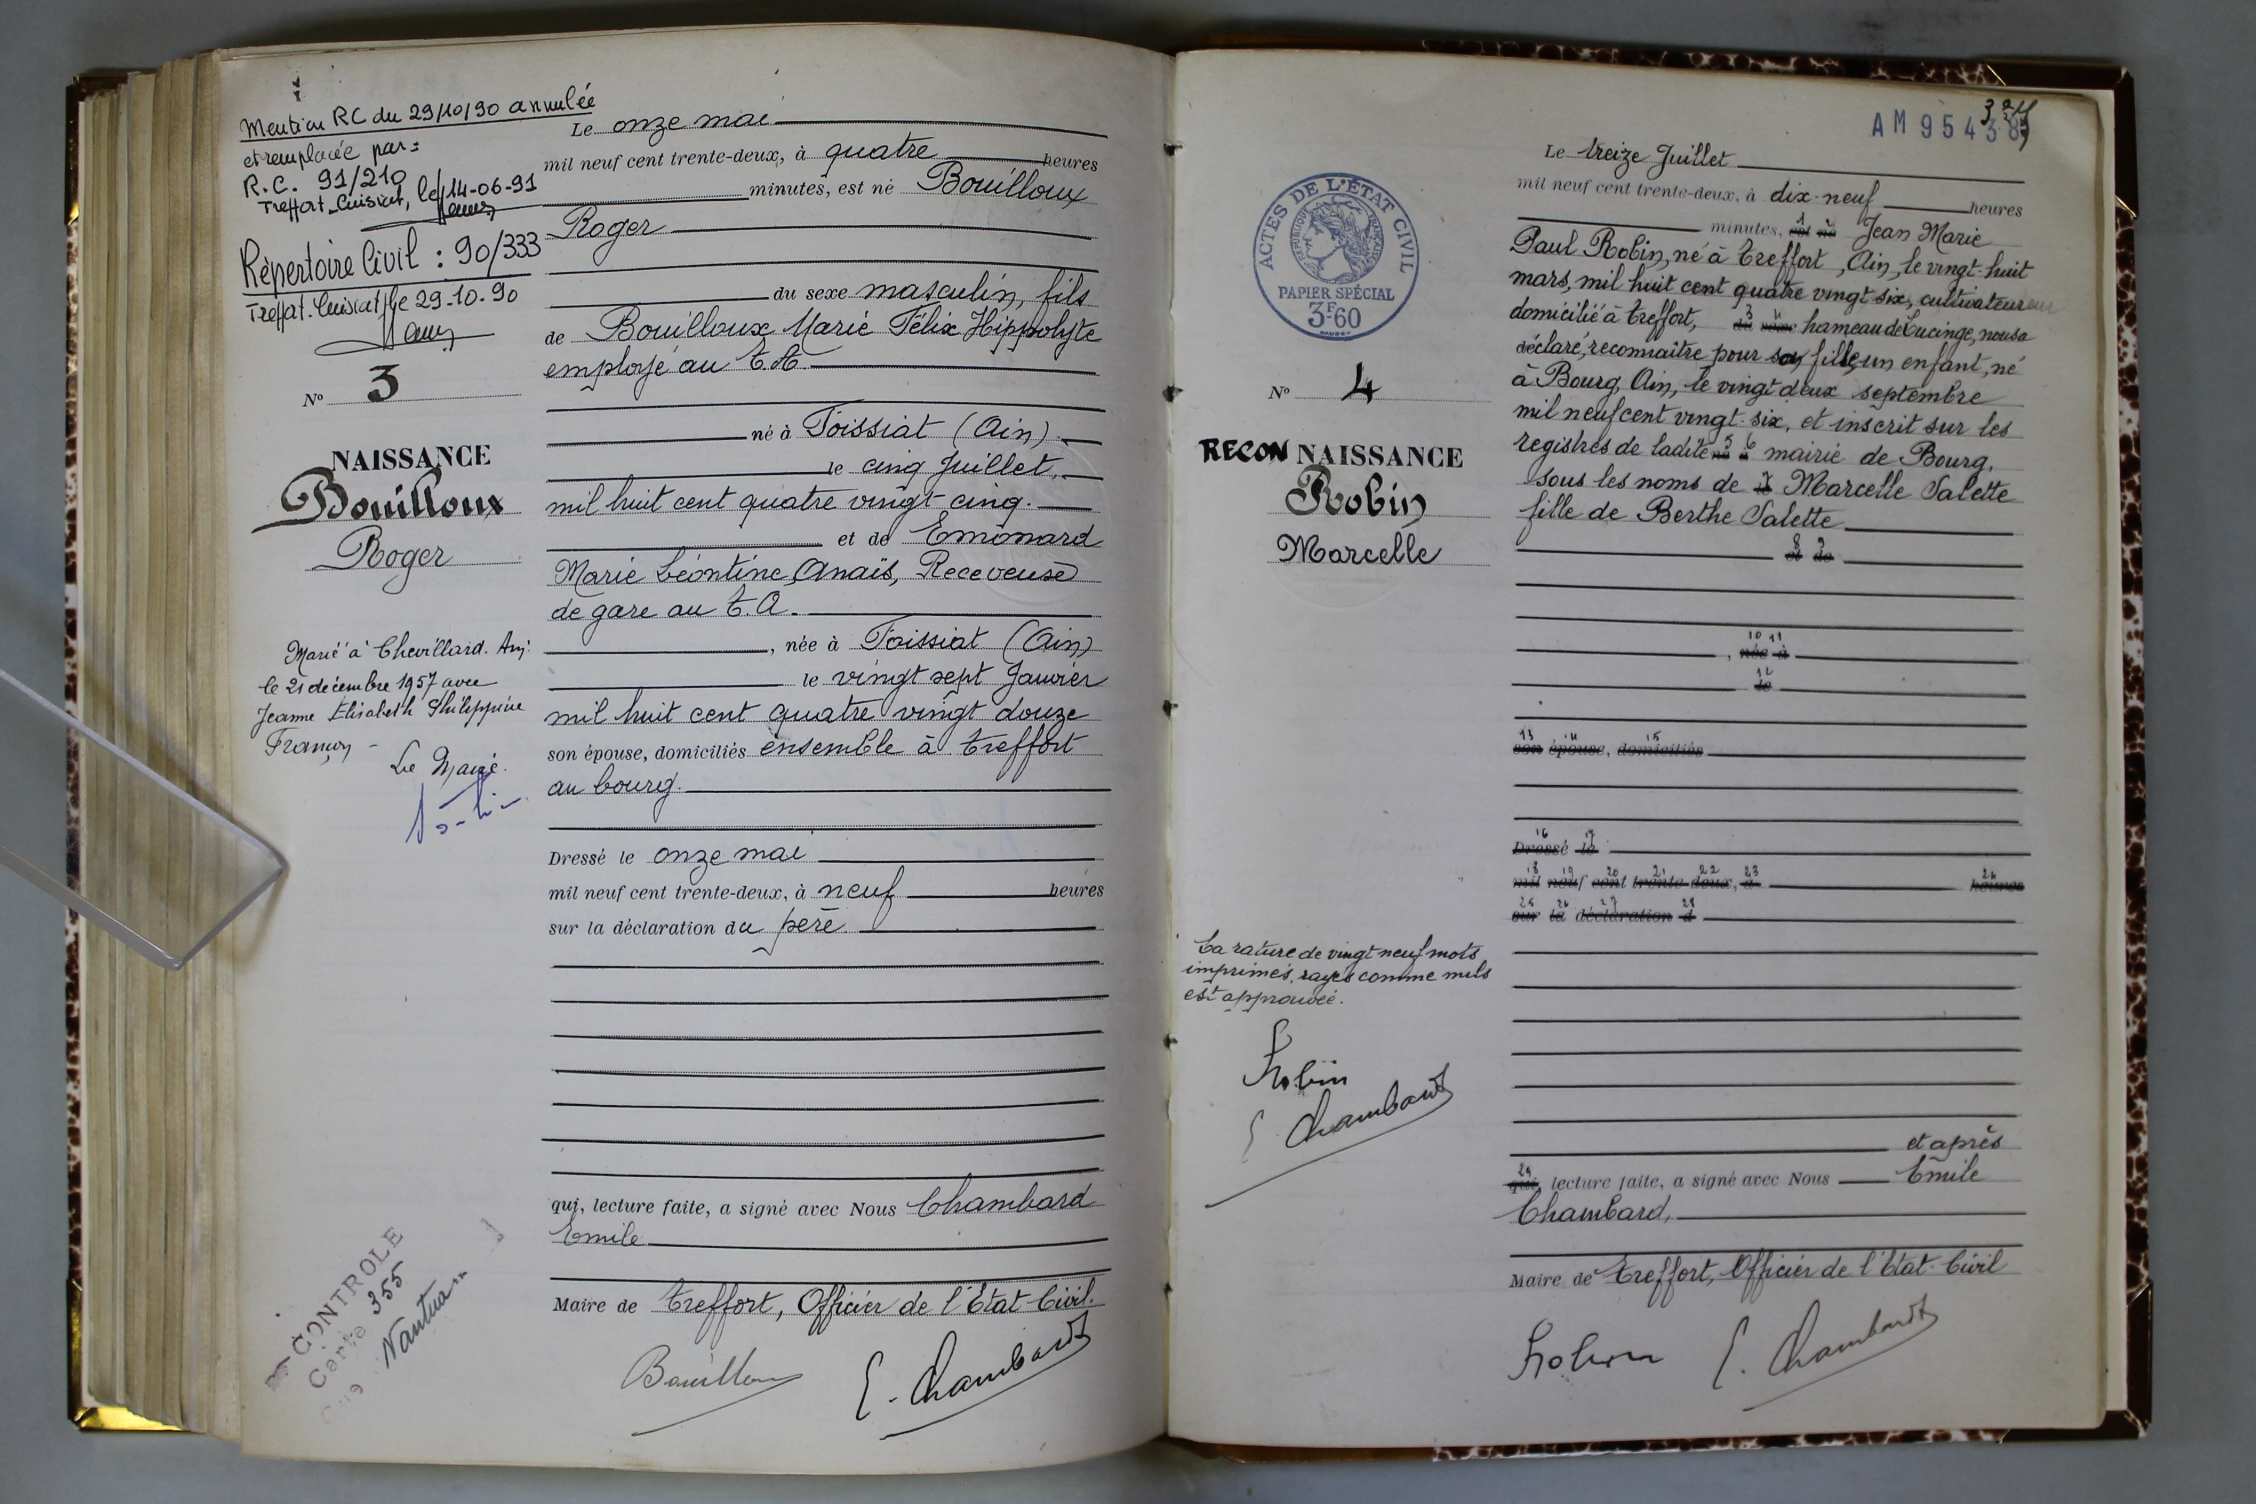 Mention RC du 29/10/90 annulée
et remplacée par:
R.C. 91/210
Treffort-Cuisiat, le 14-06-91
Répertoire Civil : 90/333
Treffort-Cuisiat, le 29-10-90
N° 3
NAISSANCE
Bouilloux
Roger
Marié à Chevillard. Ain:
le 21 décembre 1957 avec
Jeanne Elisabeth Philippine
Françon -
Le Maire.
CONTROLE
Carte 355
Nantua
Le onze mai
mil neuf cent trente-deux, à quatre heures
minutes, est né Bouilloux
Roger
du sexe masculin, fils
de Bouilloux Marie Félix Hippolyte
employé au T.A
né à Foissiat (Ain).
le cinq Juillet.
mil huit cent quatre vingt-cinq.
et de Emonard
Marie Léontine Anaïs, Receveuse
de gare au T.A.
, née à Foissiat (Ain)
le vingt sept Janvier
mil huit cent quatre vingt douze
son épouse, domiciliés ensemble à Treffort
au bourg.
Dressé le onze mai
mil neuf cent trente-deux, à neuf heures
sur la déclaration du père
qui, lecture faite, a signé avec Nous Chambard
Emile
Maire de Treffort, Officier de l'Etat-Civil.
Bouilloux
E. Chambard
AM 95438
ACTES DE L'ÉTAT CIVIL
RÉPUBLIQUE FRANÇAISE
PAPIER SPÉCIAL
3F60
N° 4
RECONNAISSANCE
Robin
Marcelle
La rature de vingt neuf mots
imprimés, rayés comme nuls
est approuvée.
Robin
E. Chambard
Le treize Juillet
mil neuf cent trente-deux, à dix-neuf heures
minutes, 1 est 2 né Jean Marie
Paul Robin, né à Treffort, Ain, le vingt-huit
mars, mil huit cent quatre vingt six, cultivateur
domicilié à Treffort, 3 du 4 sexe hameau de Lucinge, nous a
déclaré, reconnaître pour sa fille, un enfant, né
à Bourg, Ain, le vingt deux septembre
mil neuf cent vingt-six, et inscrit sur les
registres de ladite 5 né 6 à mairie de Bourg,
sous les noms de 7 le Marcelle Salette
fille de Berthe Salette
8 et 9 de
, 10 née 11 à
12 le
13 son 14 épouse, 15 domiciliés
16 Dressé 17 le
18 mil 19 neuf 20 cent 21 trente-22 deux, 23 à 24 heures
25 sur 26 la 27 déclaration 28 d
et après
29 qui, lecture faite, a signé avec Nous Emile
Chambard,
Maire de Treffort, Officier de l'Etat-Civil
Robin
E. Chambard